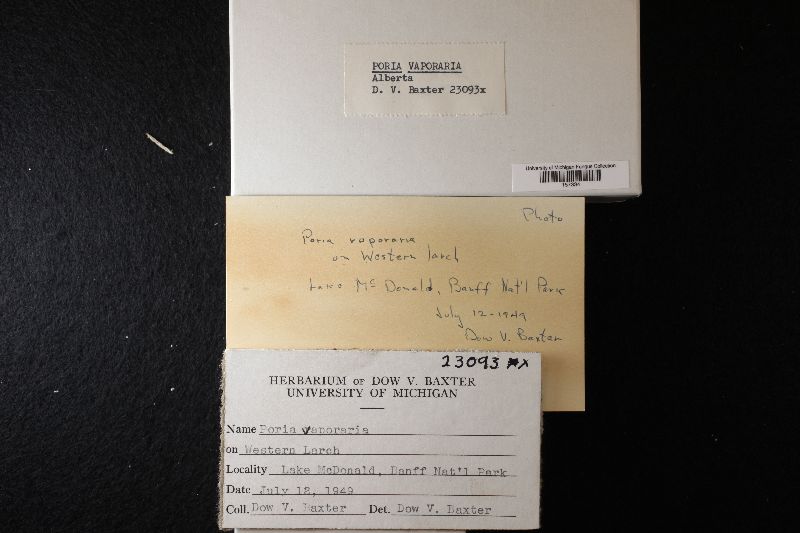 PORIA VAPORARIA
Alberta
D. V. Baxter 23093x
University of Michigan Fungus Collection
Photo
Poria vaporaria
on Western larch
Lake Mc Donald, Banff Nat'l Park
July 12-1949
Dow V. Baxter
23093 x
HERBARIUM OF DOW V. BAXTER
UNIVERSITY OF MICHIGAN
Name Poria vaporaria
on Western Larch
Locality Lake McDonald, Banff Nat'l Park
Date July 12, 1949
Coll. Dow V. Baxter Det. Dow V. Baxter